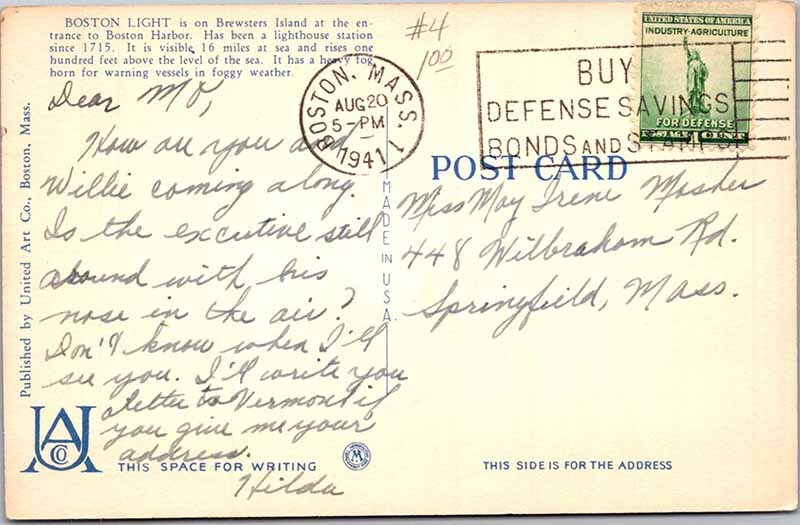 BOSTON LIGHT is on Brewsters Island at the en-
trance to Boston Harbor. Has been a lighthouse station
since 1715. It is visible 16 miles at sea and rises one
hundred feet above the level of the sea. It has a heavy fog
horn for warning vessels in foggy weather.
#4
1.00
UNITED STATES OF AMERICA
INDUSTRY-AGRICULTURE
FOR DEFENSE
POSTAGE 1 CENT
BOSTON, MASS. 1
AUG 20
5-PM
1941
BUY
DEFENSE SAVINGS
BONDS AND STAMPS
POST CARD
Dear MO,
How are you and
Willie coming along.
Is the excutive still
around with his
nose in the air?
Don't know when I'll
see you. I'll write you
a letter to Vermont if
you give me your
address.
Hilda
Miss May Irene Mosher
448 Wilbraham Rd.
Springfield, Mass.
MADE IN U.S.A.
Published by United Art Co., Boston, Mass.
UA
CO
THIS SPACE FOR WRITING
THIS SIDE IS FOR THE ADDRESS